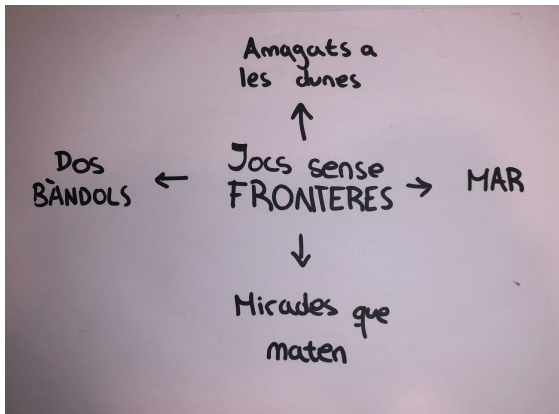 Amagats a
les dunes
Dos
BÀNDOLS
Jocs sense
FRONTERES
MAR
Mirades que
maten